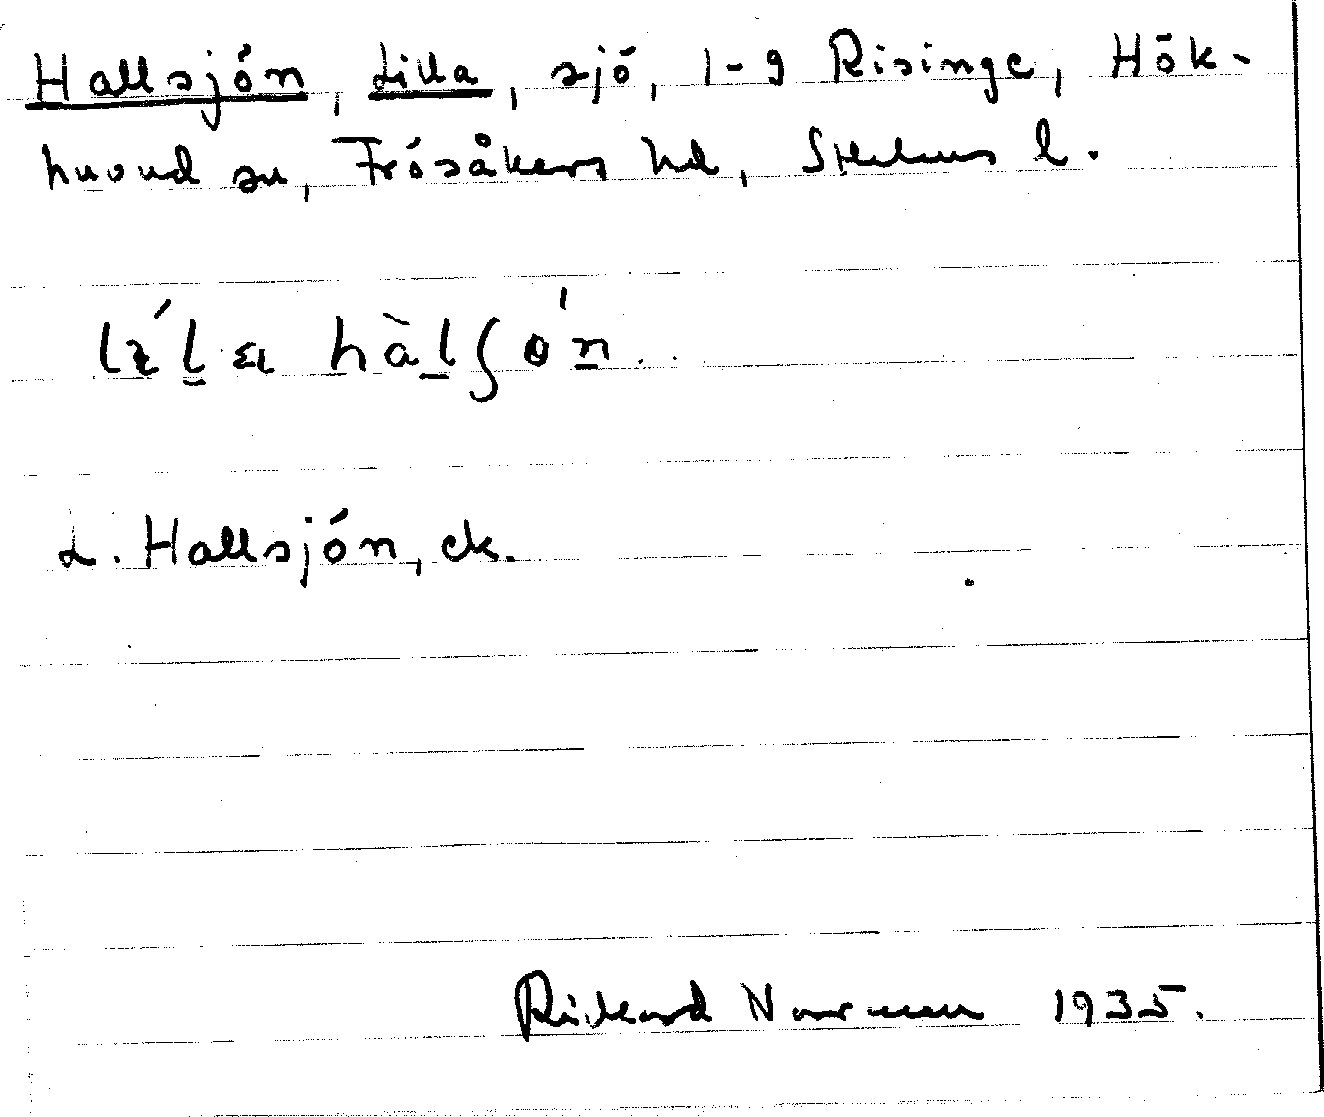 Hallsjön, Lilla, sjö, 1-9 Risinge, Hök-
huvud sn, Frösåkers hd, Sthlms l.
L. Hallsjön, ek.
Rickard Norrman 1935.